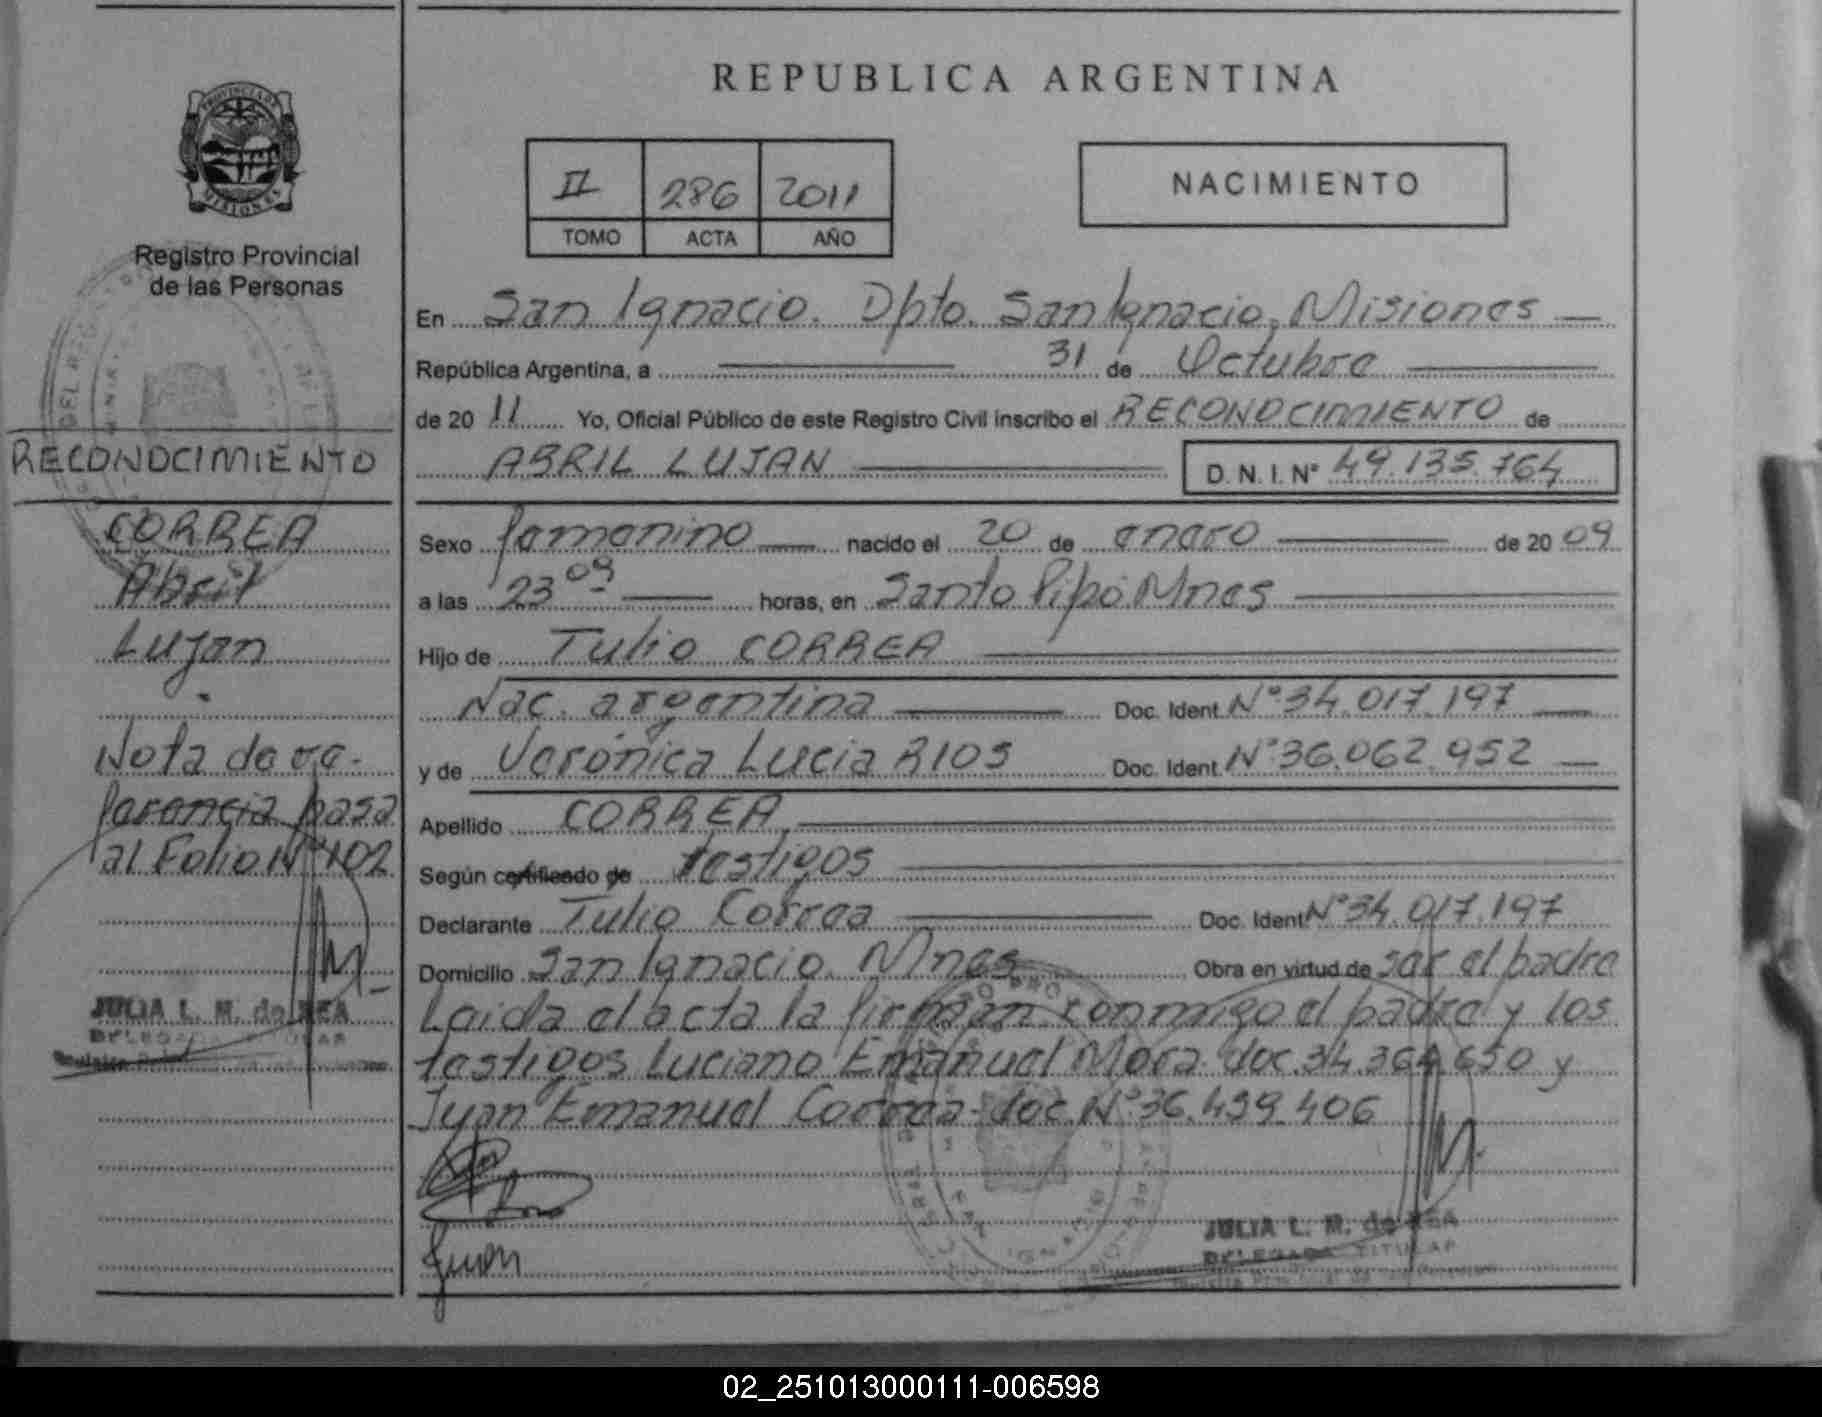 REPUBLICA ARGENTINA
PROVINCIA DE
MISIONES
Registro Provincial
de las Personas
II 286 2011
TOMO ACTA AÑO
NACIMIENTO
En San Ignacio. Dpto. San Ignacio, Misiones
República Argentina, a 31 de Octubre
de 20 11 Yo, Oficial Público de este Registro Civil inscribo el RECONOCIMIENTO de
ABRIL LUJAN D. N. I. Nº 49.135.764
RECONOCIMIENTO
CORREA
Abril
Lujan
Nota de re-
ferencia pasa
al Folio Nº 102
JULIA L. M. de REA
DELEGADA TITULAR
Sexo femenino nacido el 20 de enero de 20 09
a las 23 09 horas, en Santo Pipó. Mnes
Hijo de Tulio CORREA
Nac. argentina Doc. Ident. Nº 34.017.197
y de Verónica Lucia RIOS Doc. Ident. Nº 36.062.952
Apellido CORREA
Según certificado de testigos
Declarante Tulio Correa Doc. Ident. Nº 34.017.197
Domicilio San Ignacio. Mnes Obra en virtud de ser el padre
Leida el acta la firman conmigo el padre y los
testigos Luciano Emanuel Mora doc. 34.364.650 y
Juan Emanuel Correa- doc. Nº 36.459.406
Juan
JULIA L. M. de REA
DELEGADA TITULAR
02_251013000111-006598